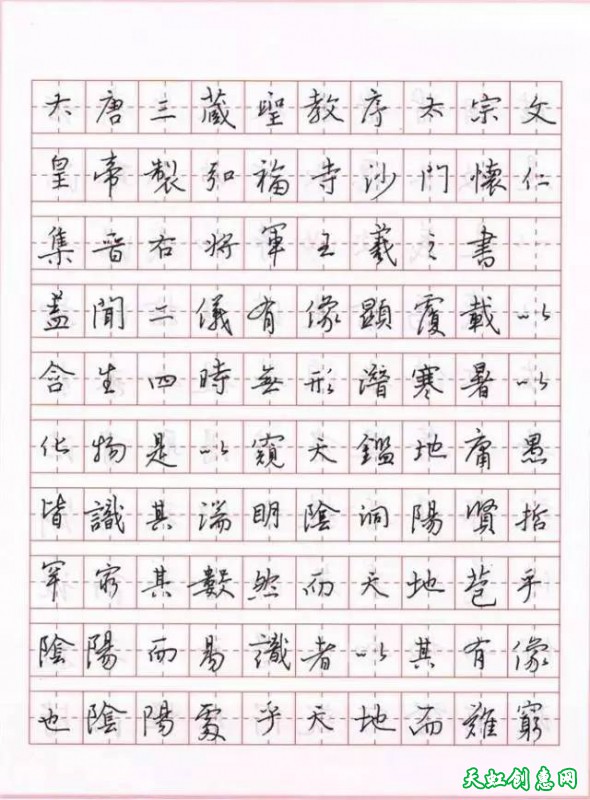 大唐三藏聖教序太宗文
皇帝製弘福寺沙門懷仁
集晉右将軍王羲之書
蓋聞二儀有像顯覆載以
含生四時無形潛寒暑以
化物是以窺天鑑地庸愚
皆識其端明陰洞陽賢哲
罕窮其數然而天地苞乎
陰陽而易識者以其有像
也陰陽處乎天地而難窮
天虹创意网